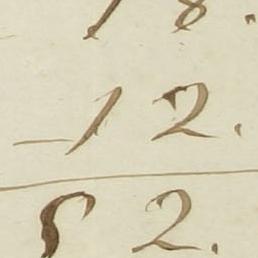 18.
-12.
52.